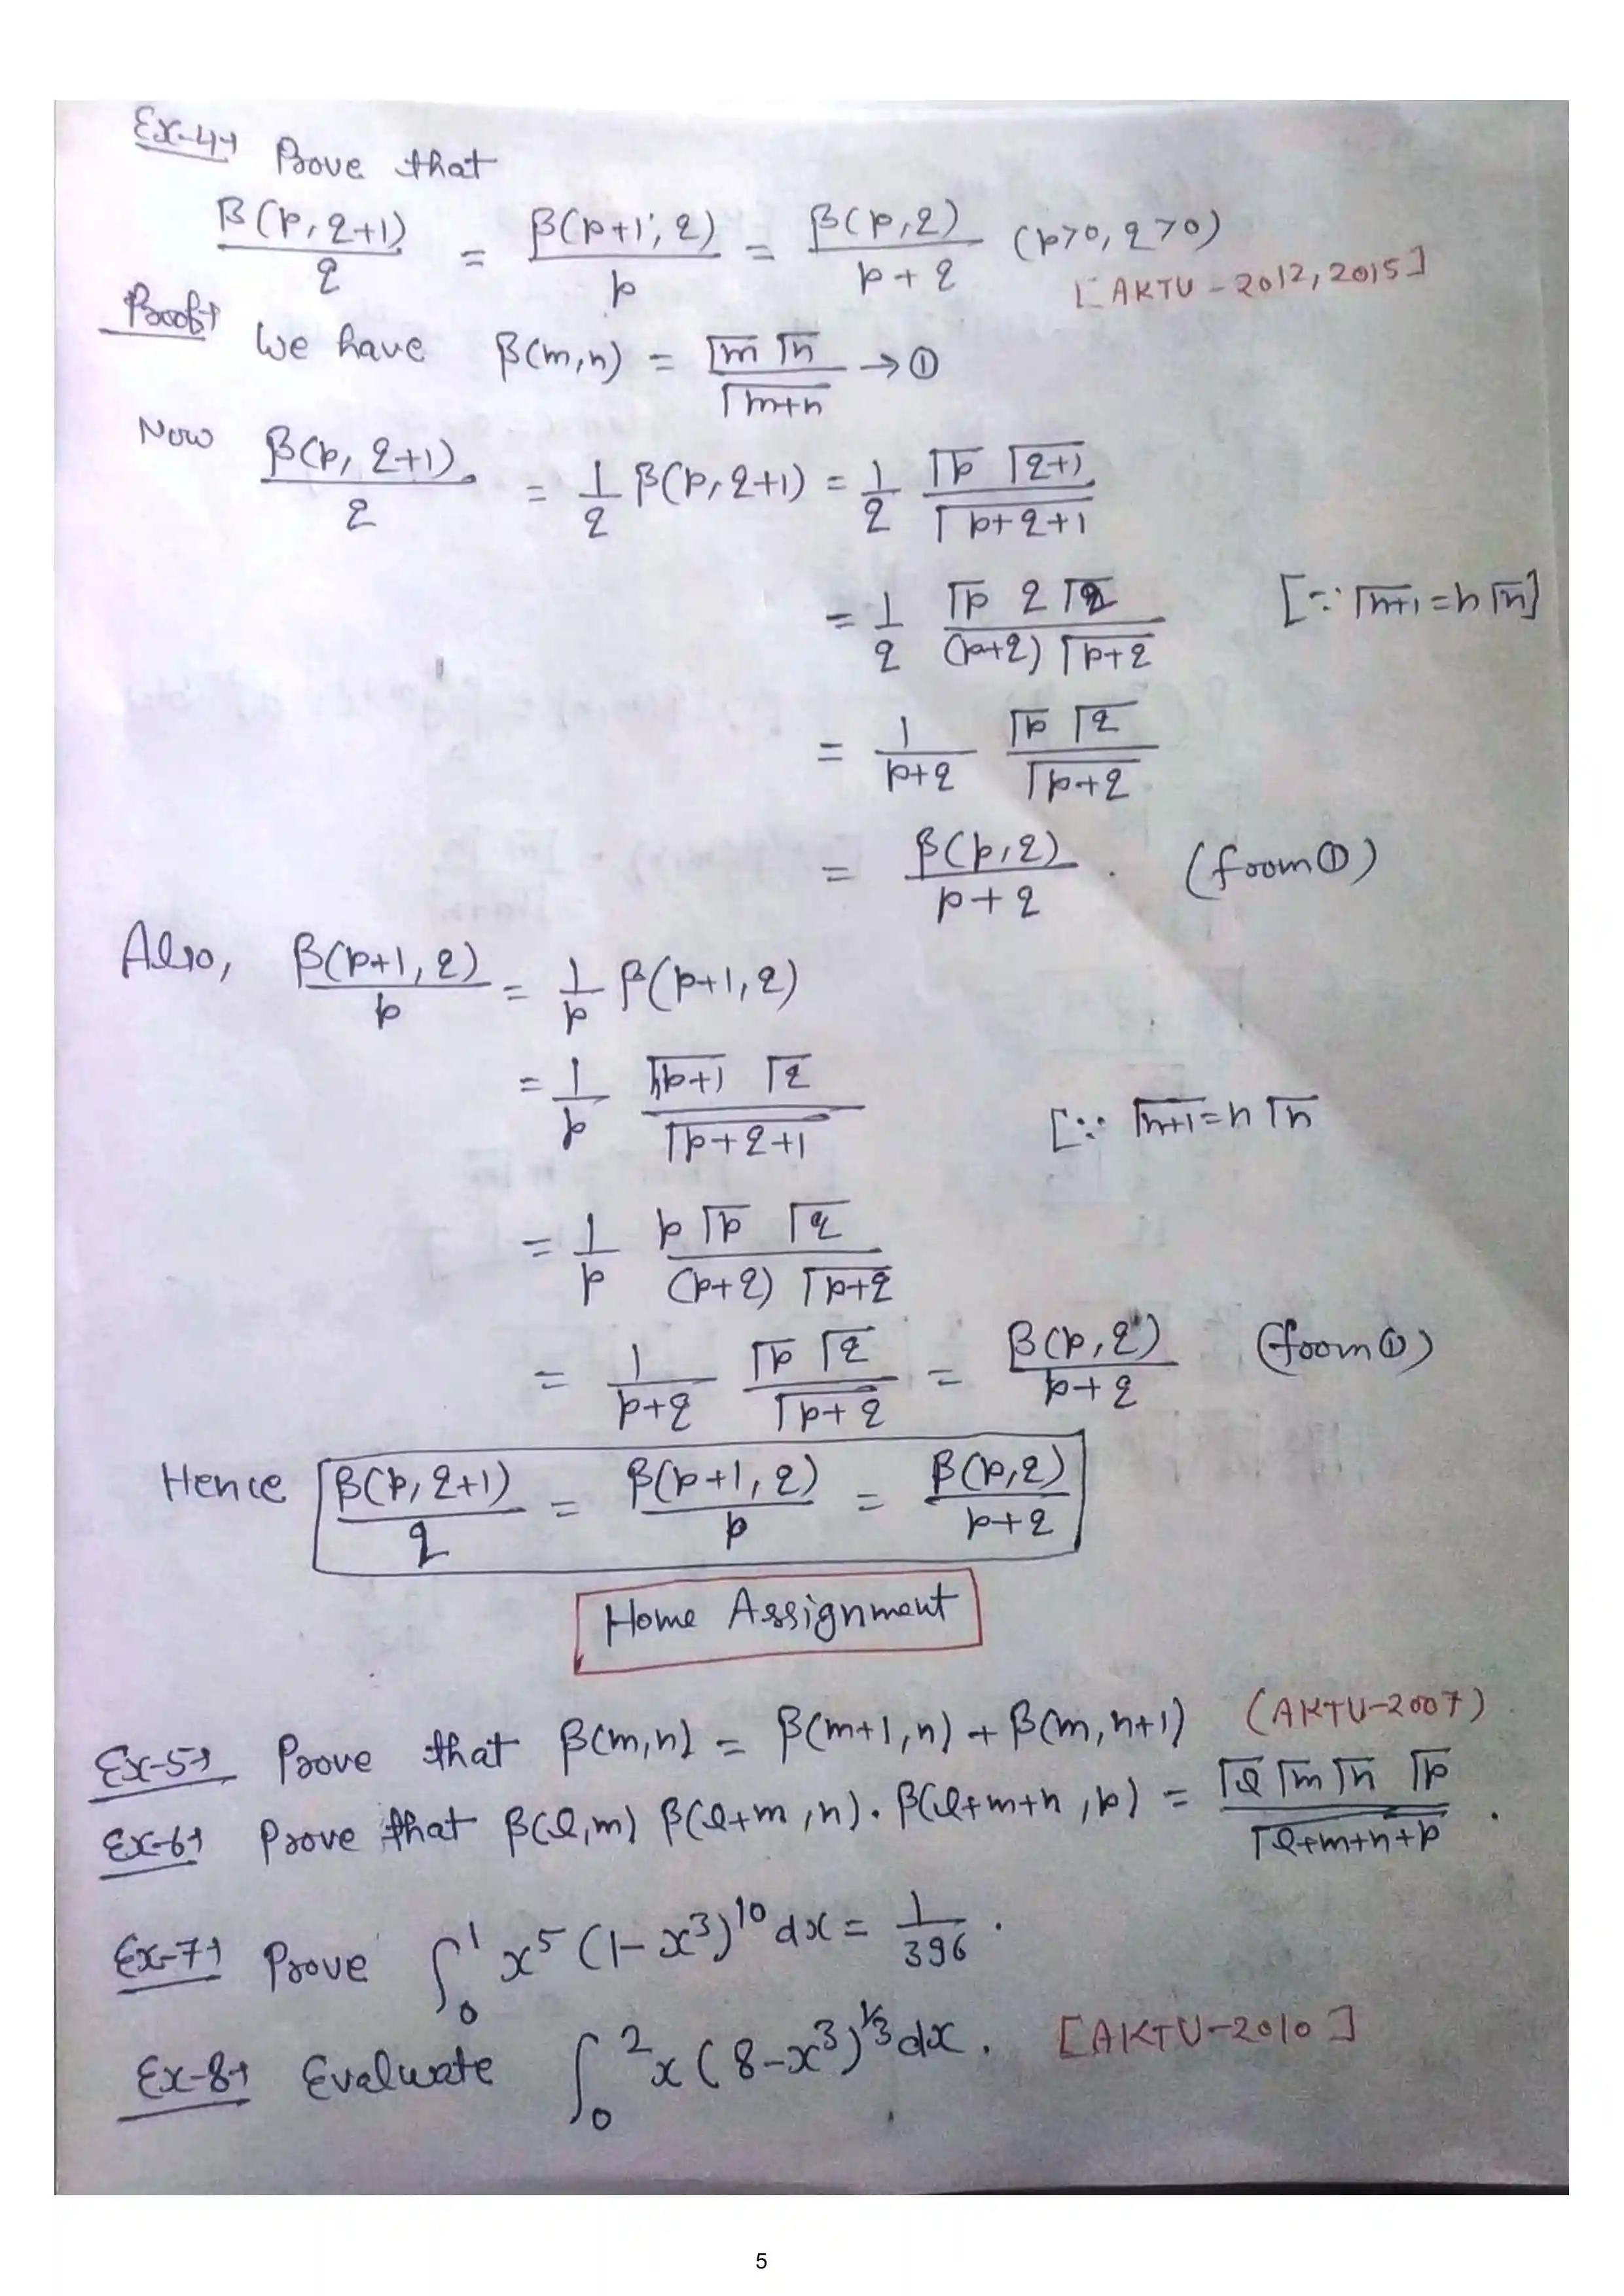 Ex-4→ Prove that
β(p, q+1)/q = β(p+1, q)/p = β(p, q)/(p+q) (p>0, q>0)
[AKTU-2012, 2015]
Proof→ We have β(m,n) = Γm Γn / Γm+n → ①
Now β(p, q+1)/q = 1/q β(p, q+1) = 1/q Γp Γq+1 / Γp+q+1
= 1/q Γp q Γq / (p+q) Γp+q [∵ Γn+1 = n Γn]
= 1/(p+q) Γp Γq / Γp+q
= β(p, q)/(p+q) . (from ①)
Also, β(p+1, q)/p = 1/p β(p+1, q)
= 1/p Γp+1 Γq / Γp+q+1 [∵ Γn+1 = n Γn
= 1/p p Γp Γq / (p+q) Γp+q
= 1/(p+q) Γp Γq / Γp+q = β(p, q)/(p+q) (from ①)
Hence β(p, q+1)/q = β(p+1, q)/p = β(p, q)/(p+q)
Home Assignment
Ex-5→ Prove that β(m,n) = β(m+1, n) + β(m, n+1) (AKTU-2007)
Ex-6→ Prove that β(l,m) β(l+m, n). β(l+m+n, p) = Γl Γm Γn Γp / Γl+m+n+p .
Ex-7→ Prove ∫₀¹ x⁵ (1-x³)¹⁰ dx = 1/396 .
Ex-8→ Evaluate ∫₀² x (8-x³)^1/3 dx. [AKTU-2010]
5